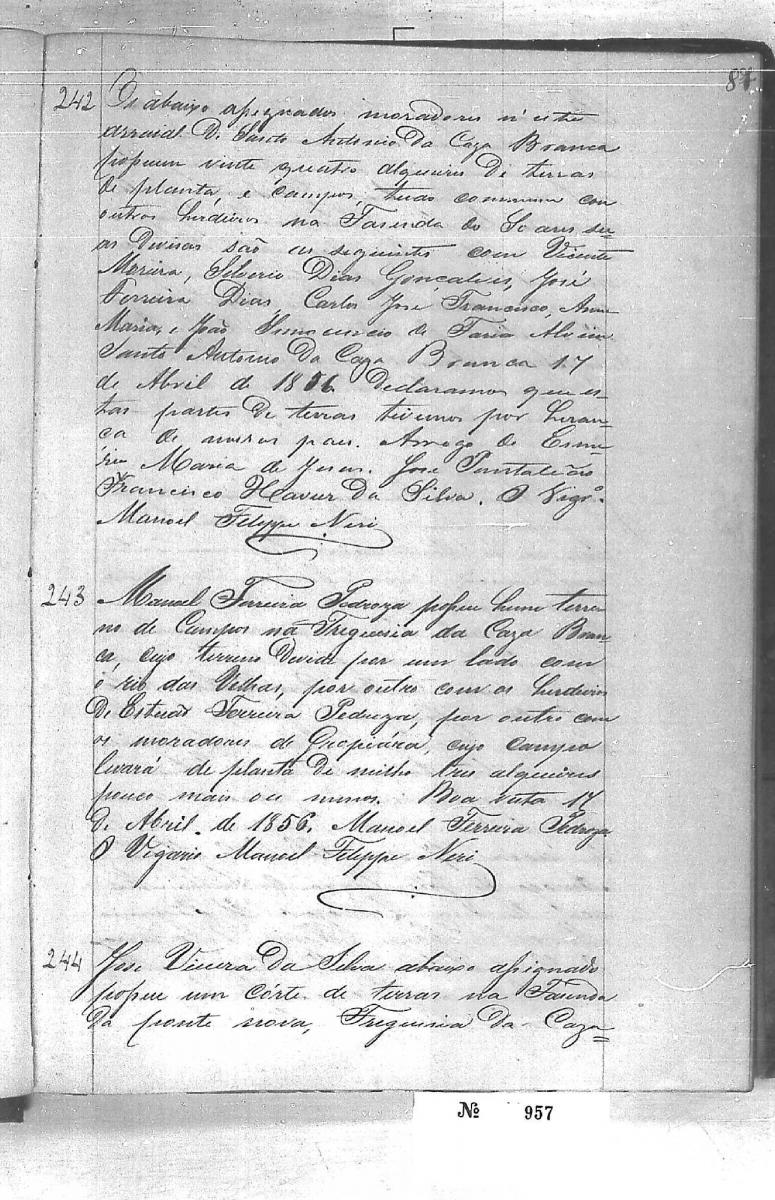 87
242 Os abaixo assignados moradores n'este
arraial de Santo Antonio da Caza Branca
possuem vinte quatro alqueires de terras
de planta, e campos, tudo commum com
outros herdeiros na Fasenda do Soares su-
as divisas são as seguintes com Vicente
Moreira, Silverio Dias Gonçalves, José
Ferreira Dias Carlos José Francisco, Anna
Maria, e João Innocencio de Faria Alvim
Santo Antonio da Caza Branca 17
de Abril de 1856 Declaramos que es-
tas partes de terras tivemos por heran-
ça de nossos paes. Arrogo de
Maria de Jesus. José Pantaleão
Francisco Xavier da Silva. O Vigrº
Manoel Filippe Neri
243 Manoel Ferreira Pedroza possue hum terre
no de Campos na Freguesia da Caza Bran-
ca, cujo terreno devide por um lado com
o rio das Velhas, por outro com os herdeiros
de Ferreira Pedroza, por outro com
os moradores de cujo campo
levará de planta de milho tres alqueires
pouco mais ou menos. Boa vista 17
de Abril de 1856. Manoel Ferreira Pedroza
O Vigario Manoel Filippe Neri
244 José Vieira da Silva abaixo assignado
possue um córte de terras na Fasenda
da ponte nova, Freguesia da Caza=
Nº 957